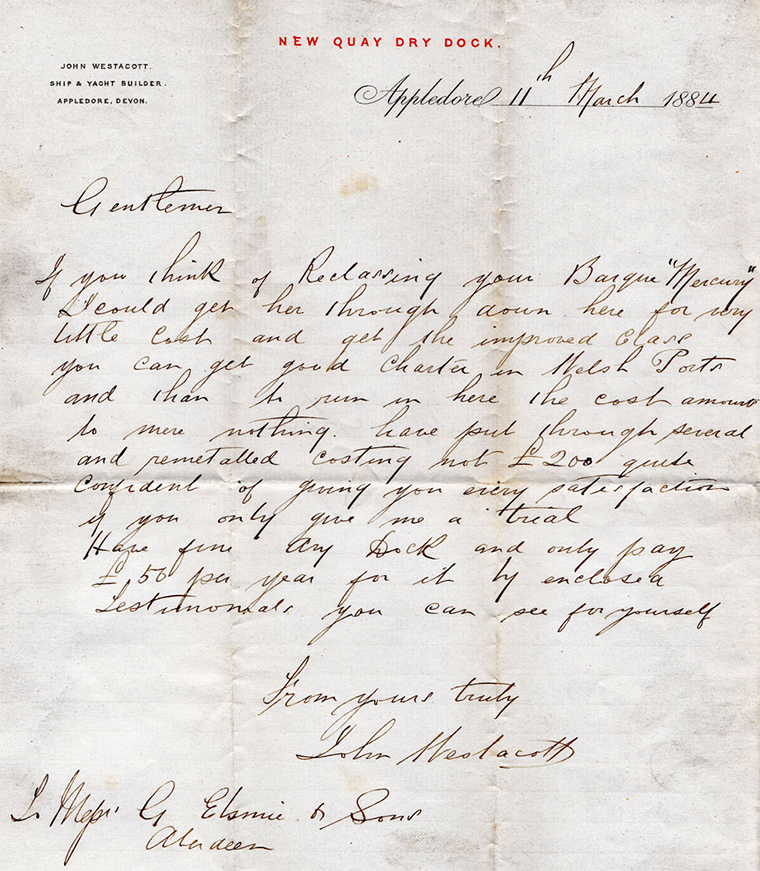 NEW QUAY DRY DOCK.
JOHN WESTACOTT.
SHIP & YACHT BUILDER.
APPLEDORE, DEVON.
Appledore 11th March 1884
Gentlemen
If you think of Reclassing your Barque "Mercury"
I could get her through down here for very
little cost and get the improved Class
you can get good Charter in Welsh Ports
and than to run in here the cost amount
to mere nothing. have put through several
and remetalled costing not £200 quite
confident of giving you every satisfaction
if you only give me a trial
Have fine dry Dock and only pay
£50 per year for it by enclosed
Testimonials you can see for yourself
From yours truly
John Westacott
To Messrs G Elsmie & Sons
Aberdeen